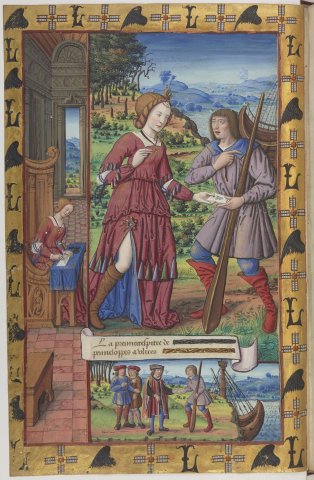 La premiere epistre de
penelopes a vlixes